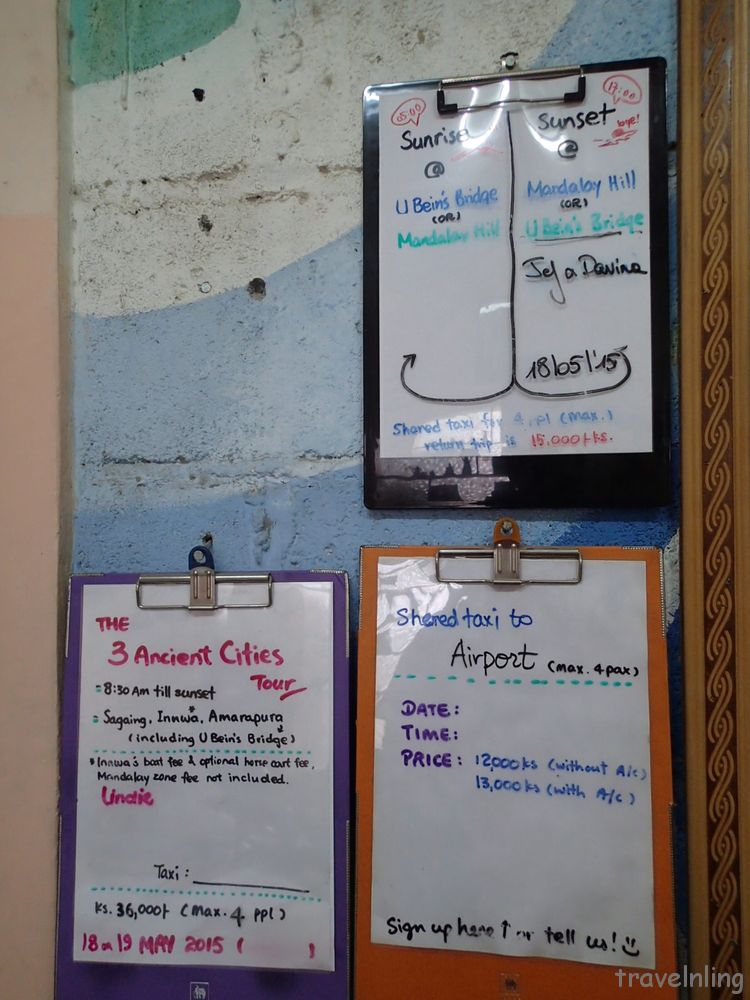 05:00
Sunrise
@
U Bein's Bridge
(OR)
Mandalay Hill
17:00
Sunset
@
Mandalay Hill
(OR)
U Bein's Bridge
18/05/'15
Shared taxi for 4 pl (max.)
return trip is 15,000 ks.
THE
3 Ancient Cities
Tour
8:30 Am till sunset
Sagaing, Innwa*, Amarapura
(including U Bein's Bridge)
* Innwa's boat fee & optional horse cart fee,
Mandalay zone fee not included.
Taxi:
Ks. 36,000/- (max. 4 ppl)
18 or 19 MAY 2015 ( )
Shared taxi to
Airport (max. 4 pax)
DATE:
TIME:
PRICE: 12,000 ks (without A/c)
13,000 ks (with A/c)
Sign up here ↑ or tell us!
travelnling